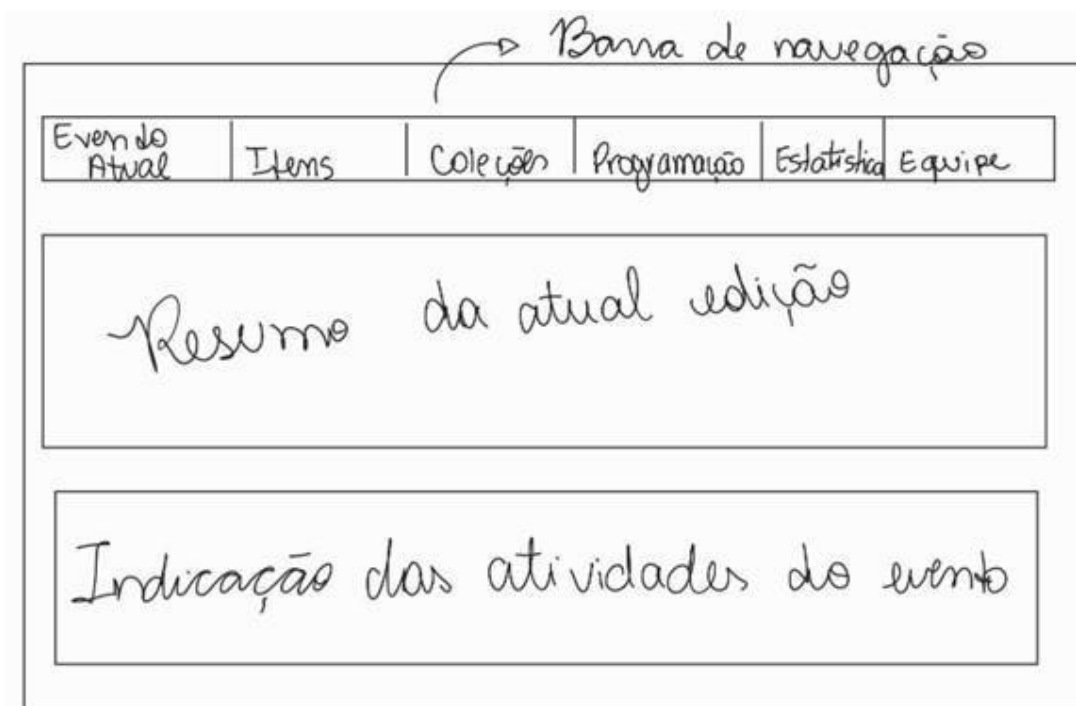 Barra de navegação
Evendo
Atual
Itens
Coleções
Programação
Estatística
Equipe
Resumo da atual edição
Indicação das atividades do evento